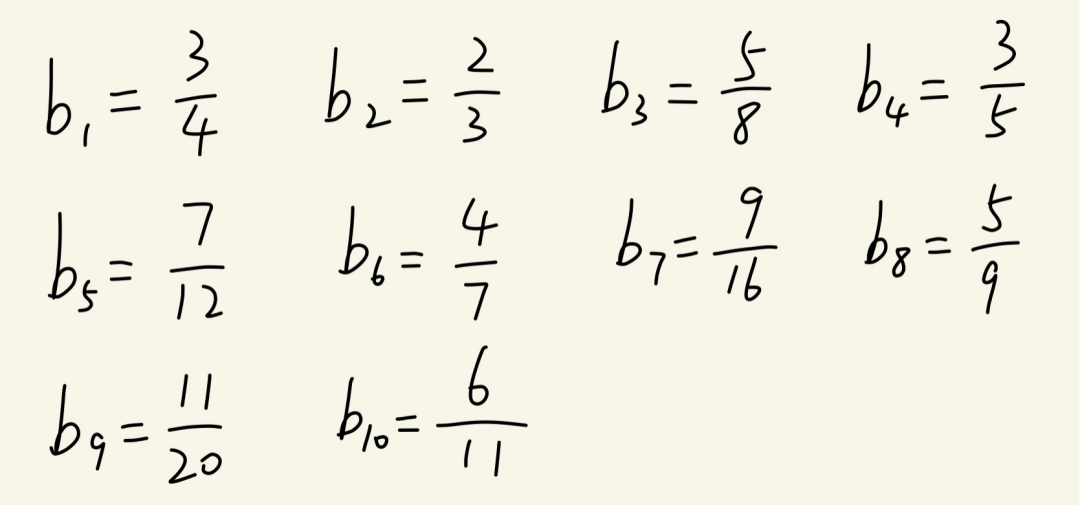 b₁ = 3/4 b₂ = 2/3 b₃ = 5/8 b₄ = 3/5
b₅ = 7/12 b₆ = 4/7 b₇ = 9/16 b₈ = 5/9
b₉ = 11/20 b₁₀ = 6/11